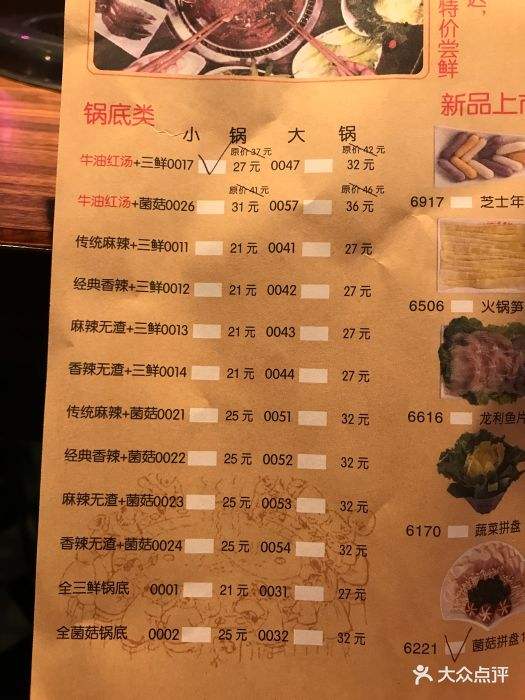 达，
特价尝鲜
锅底类
小 锅 大 锅
新品上市
原价 37 元 原价 42 元
牛油红汤+三鲜0017 27 元 0047 32 元
原价 41 元 原价 46 元
牛油红汤+菌菇0026 31 元 0057 36 元
传统麻辣+三鲜0011 21 元 0041 27 元
经典香辣+三鲜0012 21 元 0042 27 元
麻辣无渣+三鲜0013 21 元 0043 27 元
香辣无渣+三鲜0014 21 元 0044 27 元
传统麻辣+菌菇0021 25 元 0051 32 元
经典香辣+菌菇0022 25 元 0052 32 元
麻辣无渣+菌菇0023 25 元 0053 32 元
香辣无渣+菌菇0024 25 元 0054 32 元
全三鲜锅底 0001 21 元 0031 27 元
全菌菇锅底 0002 25 元 0032 32 元
6917 芝士年
6506 火锅笋
6616 龙利鱼片
6170 蔬菜拼盘
6221 菌菇拼盘1
大众点评